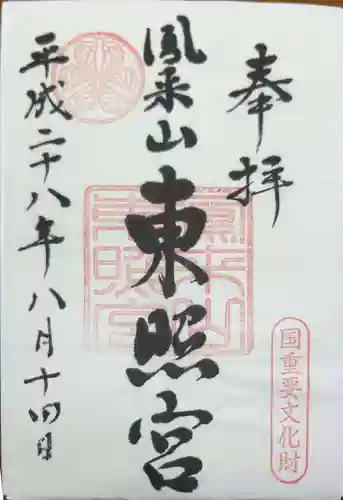 奉拝
国重要文化財
鳳来山
東照宮
鳳来山東照宮
平成二十八年八月十四日